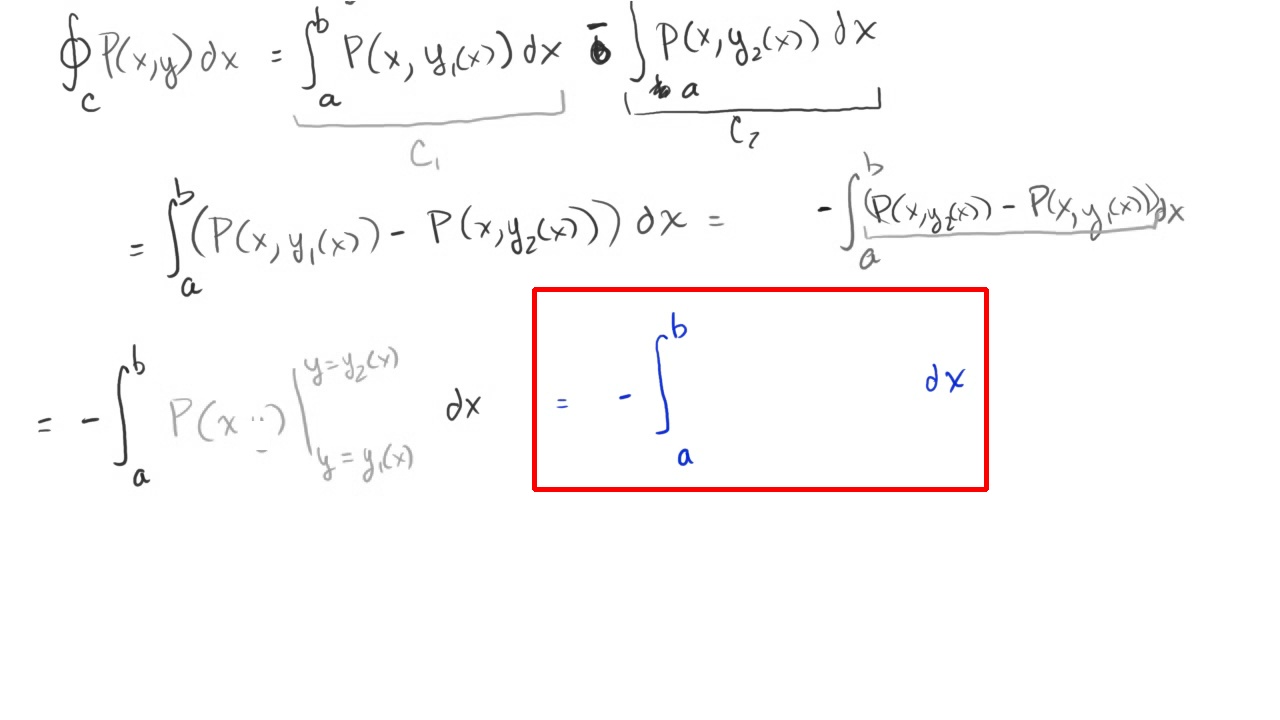 ∮_C P(x,y) dx = ∫_a^b P(x, y₁(x)) dx - ∫_a P(x, y₂(x)) dx
C₁ C₂
= ∫_a^b (P(x, y₁(x)) - P(x, y₂(x))) dx = - ∫_a^b (P(x, y₂(x)) - P(x, y₁(x))) dx
= - ∫_a^b P(x ..) |_{y = y₁(x)}^{y = y₂(x)} dx = - ∫_a^b dx